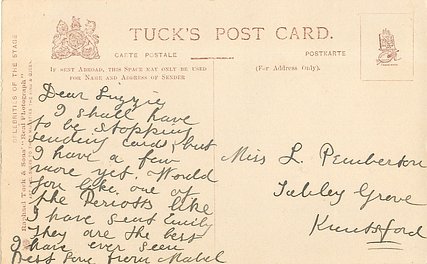 TUCK'S POST CARD.
CARTE POSTALE
POSTKARTE
IF SENT ABROAD, THIS SPACE MAY ONLY BE USED
FOR NAME AND ADDRESS OF SENDER
(For Address Only).
CELEBRITIES OF THE STAGE
Raphael Tuck & Sons' "Real Photograph"
Dear Lizzie
I shall have
to be stopping
sending cards, but
I have a few
more yet. Would
you like one of
the Periotts like
I have sent Emily
They are the best
I have ever seen
Best love from Mabel
Miss L. Pemberton
Tabley Grove
Knutsford